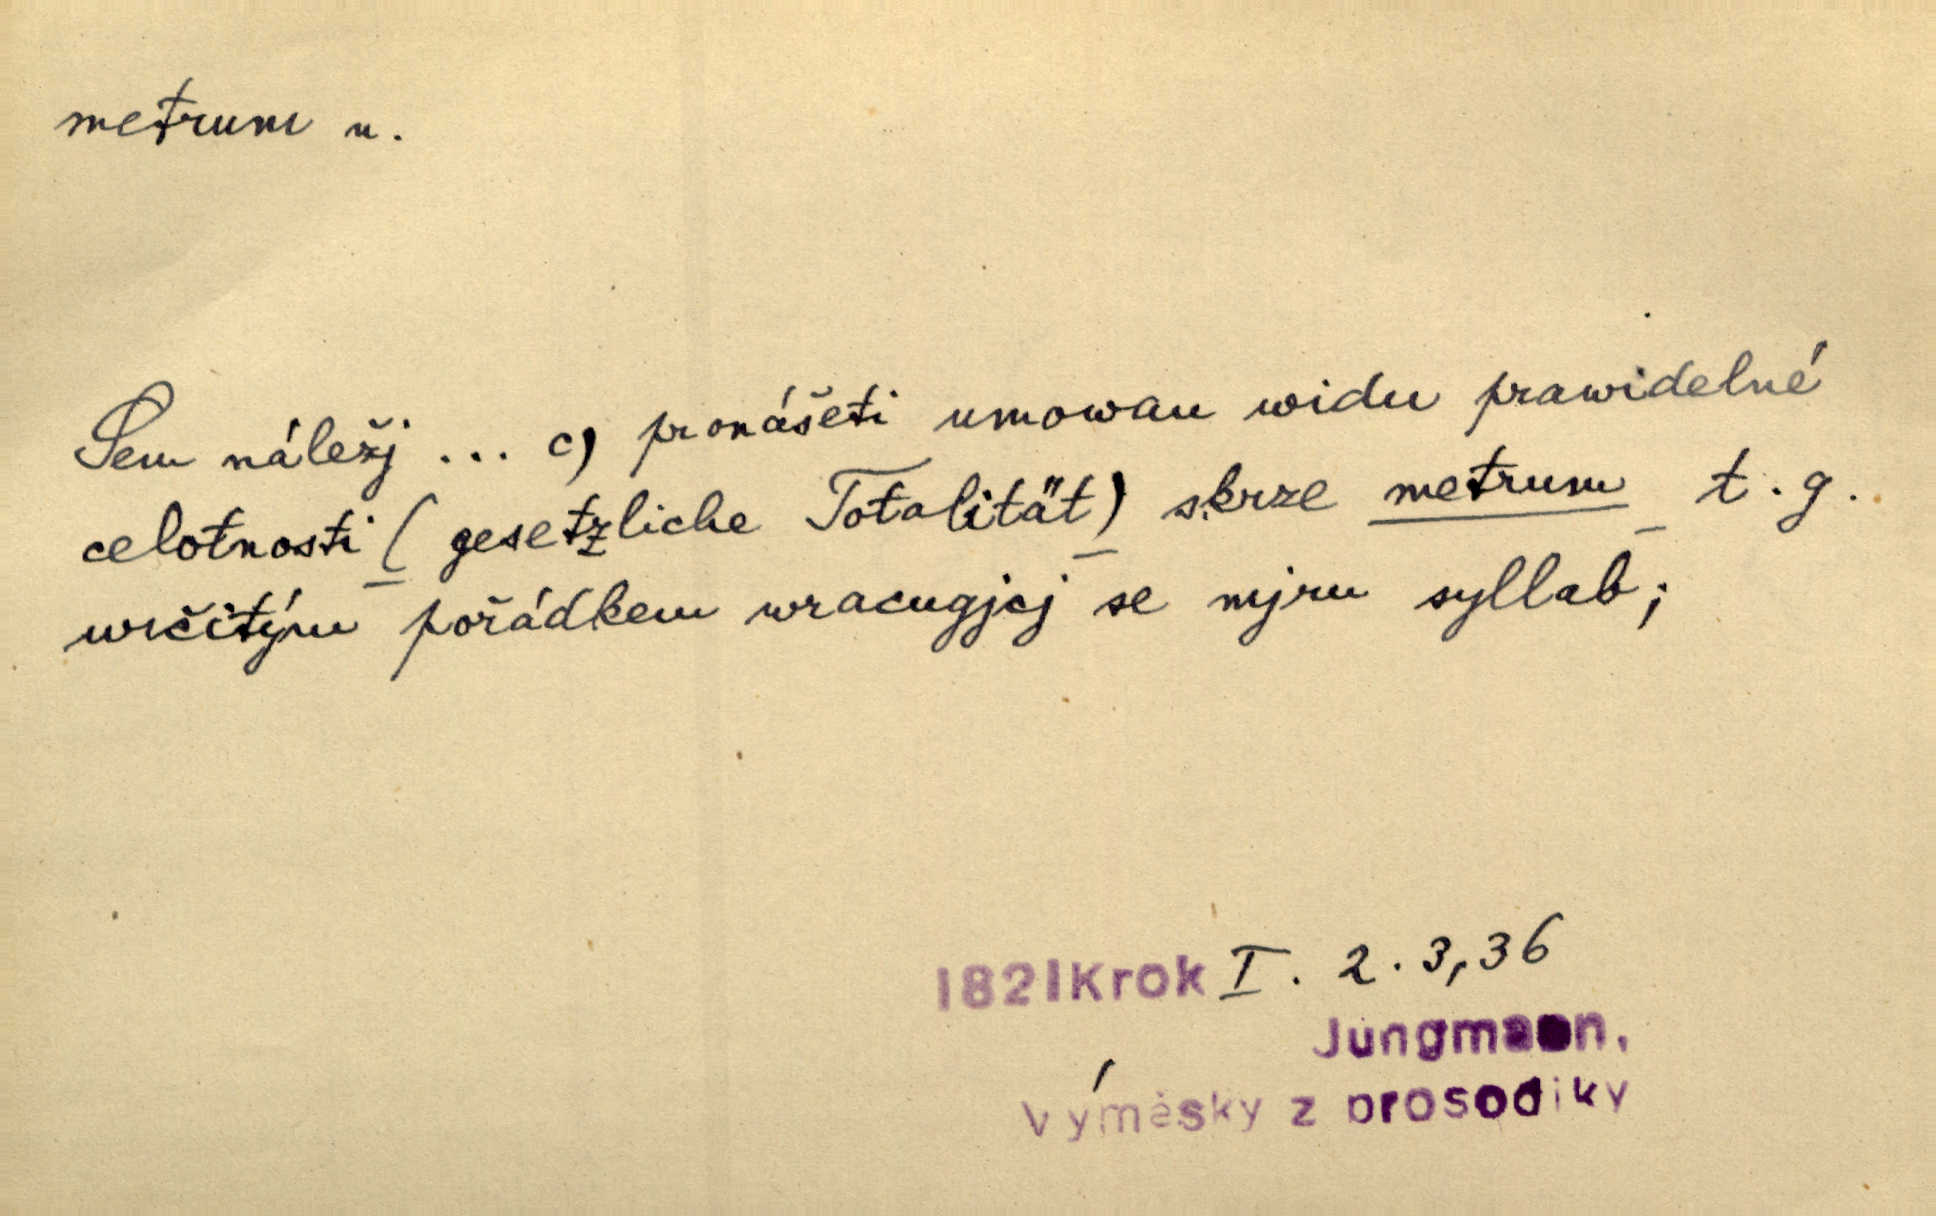 metrum n.
Sem náležj ... c) pronášeti umowau widu prawidelné
celotnosti (gesetzliche Totalität) skrze metrum t. g.
určitým pořádkem wracugjcj se mjru syllab;
1821 Krok I. 2. 3, 36
Jungmann,
Výměsky z prosodiky